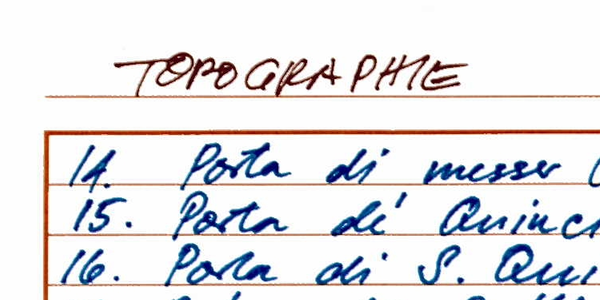 TOPOGRAPHIE
14. Porta di messer
15. Porta dé
16. Porta di S.